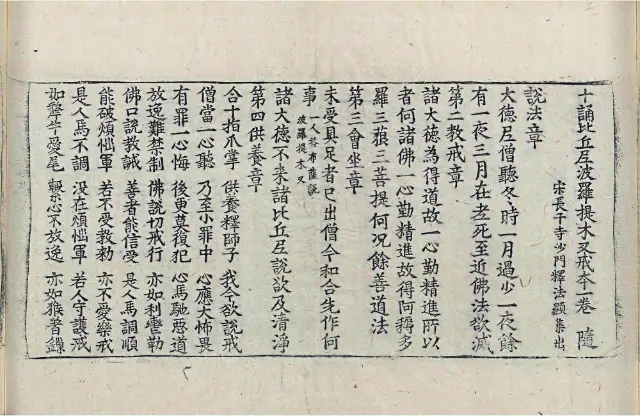 十誦比丘尼波羅提木叉戒本一卷 隨
宋長干寺沙門釋法顯集出
說法章
大德尼僧聽冬時一月過少一夜餘
有一夜三月在老死至近佛法欲滅
第二教戒章
諸大德為得道故一心勤精進所以
者何諸佛一心勤精進故得阿耨多
羅三藐三菩提何況餘善道法
第三會坐章
未受具足者已出僧今和合先作何
事一人答布薩說波羅提木叉
諸大德不來諸比丘尼說欲及清淨
第四供養章
合十指爪掌 供養釋師子 我今欲說戒
僧當一心聽 乃至小罪中 心應大怖畏
有罪一心悔 後更莫復犯 心馬馳惡道
放逸難禁制 佛說切戒行 亦如利轡勒
佛口說教誡 善者能信受 是人馬調順
能破煩惱軍 若不受教勅 亦不愛樂戒
是人馬不調 沒在煩惱軍 若人守護戒
如犛牛愛尾 繫心不放逸 亦如猴著鏁